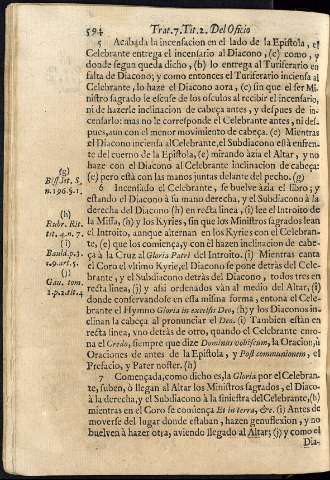 594 Trat.7.Tit.2. Del Oficio
5 Acabada la incensacion en el lado de la Epistola, el
Celebrante entrega el incensario al Diacono, (e) como, y
donde segun queda dicho, (h) lo entrega al Turiferario en
falta de Diacono; y como entonces el Turiferario inciensa al
Celebrante, lo haze el Diacono aora, (c) sin que el ser Mi-
nistro sagrado le escuse de los osculos al recibir el incensario,
ni de hazerle inclinacion de cabeça antes, y despues de in-
censarlo: mas no le corresponde el Celebrante antes, ni des-
pues, aun con el menor movimiento de cabeça. (e) Mientras
el Diacono inciensa al Celebrante, el Subdiacono està enfren-
te del cuerno de la Epistola, (e) mirando àzia el Altar, y no
haze con el Diacono al Celebrante inclinacion de cabeça:
(e) pero està con las manos juntas delante del pecho. (g)
6 Incensado el Celebrante, se buelve àzia el libro; y
estando el Diacono à su mano derecha, y el Subdiacono à la
derecha del Diacono (h) en recta linea, (i) lee el Introito de
la Missa, (h) y los Kyries, sin que los Ministros sagrados lean
el Introito, aunque alternan en los Kyries con el Celebran-
te, (e) que los comiença, y con èl hazen inclinacion de cabe-
ça à la Cruz al Gloria Patri del Introito. (i) Mientras canta
el Coro el vltimo Kyrie, el Diacono se pone detràs del Cele-
brante, y el Subdiacono detràs del Diacono, todos tres en
recta linea, (j) y assi ordenados vàn al medio del Altar, (i)
donde conservandose en esta misma forma, entona el Cele-
brante el Hymno Gloria in excelsis Deo, (h) y los Diaconos in-
clinan la cabeça al pronunciar el Deo. (i) Tambien estàn en
recta linea, vno detràs de otro, quando el Celebrante ento-
na el Credo, siempre que dize Dominus vobiscum, la Oracion, ù
Oraciones de antes de la Epistola, y Post communionem, el
Prefacio, y Pater noster. (h)
7 Començada, como dicho es, la Gloria por el Celebran-
te, suben, ò llegan al Altar los Ministros sagrados, el Diaco-
à la derecha, y el Subdiacono à la siniestra del Celebrante, (h)
mientras en el Coro se comiença Et in terra, &c. (i) Antes de
moverse del lugar donde estaban, hazen genuflexion, y no
buelven à hazer otra, aviendo llegado al Altar; (j) y como el
Dia-
(g)
(h)
Rubr. Rit.
tit. 4. n. 7.
(i)
(j)